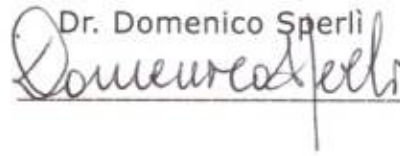 Dr. Domenico Sperlì
Domenico Sperlì